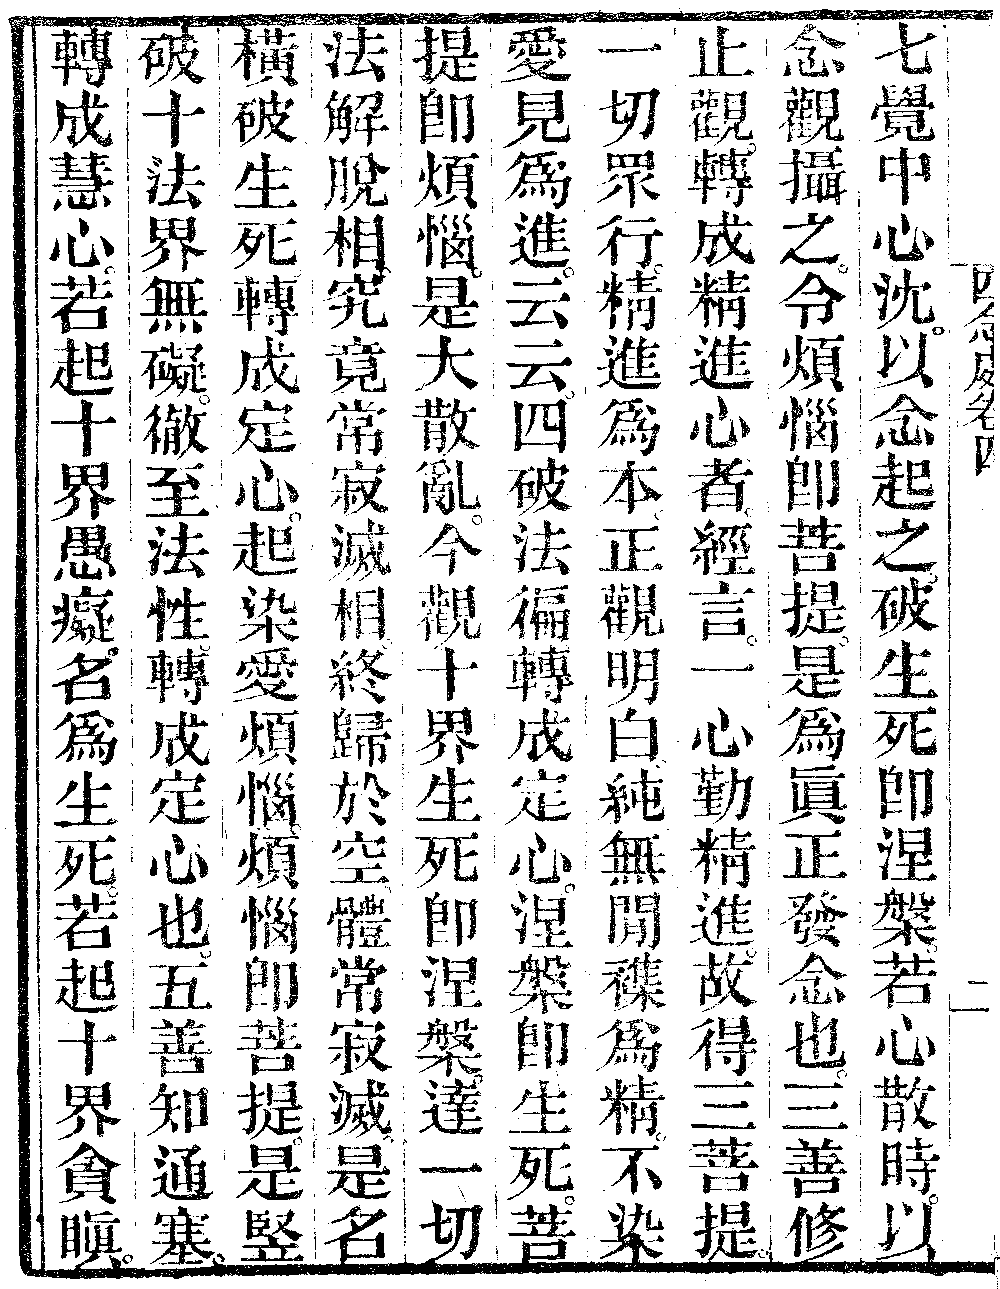 七覺中心沈。以念起之。破生死卽涅槃。若心散時。以
念觀攝之。令煩惱卽菩提。是爲眞正發念也。三善修
止觀。轉成精進心者。經言。一心勤精進。故得三菩提。
一切眾行。精進爲本。正觀明白。純無閒襍爲精。不染
愛見爲進。云云。四破法徧轉成定心。涅槃卽生死。菩
提卽煩惱。是大散亂。今觀十界生死卽涅槃。達一切
法解脫相。究竟常寂滅相。終歸於空。體常寂滅。是名
橫破生死轉成定心。起染愛煩惱。煩惱卽菩提。是竪
破十法界無礙。徹至法性。轉成定心也。五善知通塞。
轉成慧心。若起十界愚癡。名爲生死。若起十界貪瞋。
四念處卷四
二